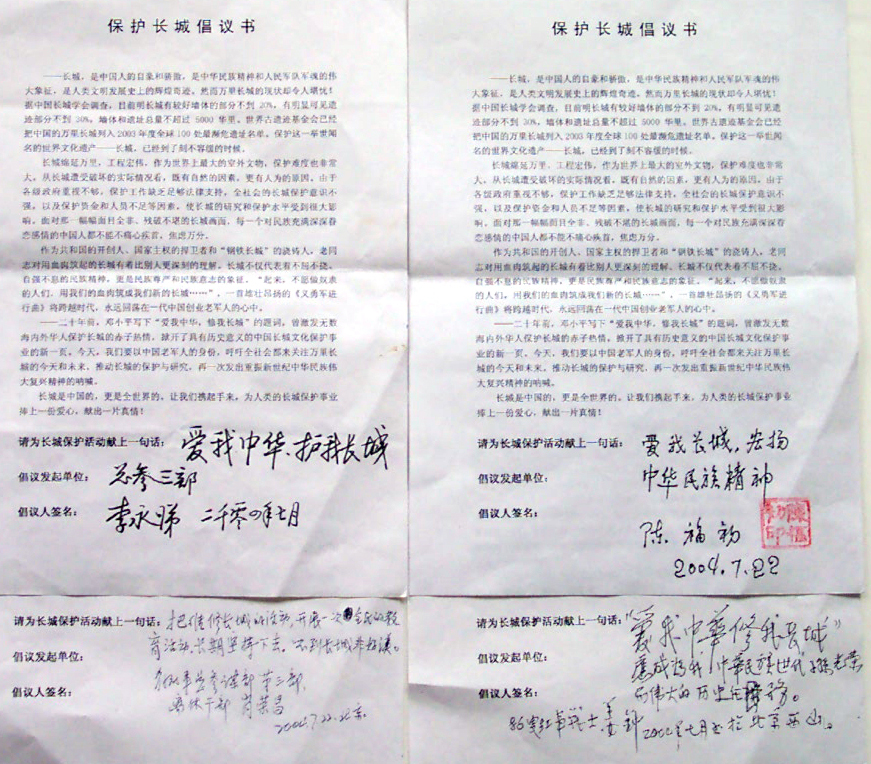 保护长城倡议书
——长城，是中国人的自豪和骄傲，是中华民族精神和人民军队军魂的伟
大象征，是人类文明发展史上的辉煌奇迹。然而万里长城的现状却令人堪忧！
据中国长城学会调查，目前明长城有较好墙体的部分不到 20%，有明显可见遗
迹部分不到 30%，墙体和遗址总量不超过 5000 华里。世界古遗迹基金会已经
把中国的万里长城列入 2003 年度全球 100 处最濒危遗址名单。保护这一举世闻
名的世界文化遗产——长城，已经到了刻不容缓的时候。
长城绵延万里，工程宏伟，作为世界上最大的室外文物，保护难度也非常
大。从长城遭受破坏的实际情况看，既有自然的因素，更有人为的原因。由于
各级政府重视不够，保护工作缺乏足够法律支持，全社会的长城保护意识不
强，以及保护资金和人员不足等因素，使长城的研究和保护水平受到很大影
响。面对那一幅幅面目全非、残破不堪的长城画面，每一个对民族充满深深眷
恋感情的中国人都不能不痛心疾首，焦虑万分。
作为共和国的开创人、国家主权的捍卫者和“钢铁长城”的浇铸人，老同
志对用血肉筑起的长城有着比别人更深刻的理解。长城不仅代表着不屈不挠、
自强不息的民族精神，更是民族尊严和民族意志的象征。“起来，不愿做奴隶
的人们，用我们的血肉筑成我们新的长城……”，一首雄壮昂扬的《义勇军进
行曲》将跨越时代，永远回荡在一代中国创业老军人的心中。
——二十年前，邓小平写下“爱我中华，修我长城”的题词，曾激发无数
海内外华人保护长城的赤子热情，掀开了具有历史意义的中国长城文化保护事
业的新一页。今天，我们要以中国老军人的身份，呼吁全社会都来关注万里长
城的今天和未来，推动长城的保护与研究，再一次发出重振新世纪中华民族伟
大复兴精神的呐喊。
长城是中国的，更是全世界的。让我们携起手来，为人类的长城保护事业
捧上一份爱心，献出一片真情！
请为长城保护活动献上一句话： 爱我中华、护我长城
倡议发起单位： 总参三部
倡议人签名： 李永悌 二千零四年七月
请为长城保护活动献上一句话：把维修长城的活动，开展一次全民的教
育活动，长期坚持下去，不到长城非好汉。
倡议发起单位：
倡议人签名： 总参谋部第三部
离休干部 肖荣昌
2004.7.22.北京
保护长城倡议书
——长城，是中国人的自豪和骄傲，是中华民族精神和人民军队军魂的伟
大象征，是人类文明发展史上的辉煌奇迹。然而万里长城的现状却令人堪忧！
据中国长城学会调查，目前明长城有较好墙体的部分不到 20%，有明显可见遗
迹部分不到 30%，墙体和遗址总量不超过 5000 华里。世界古遗迹基金会已经
把中国的万里长城列入 2003 年度全球 100 处最濒危遗址名单。保护这一举世闻
名的世界文化遗产——长城，已经到了刻不容缓的时候。
长城绵延万里，工程宏伟，作为世界上最大的室外文物，保护难度也非常
大。从长城遭受破坏的实际情况看，既有自然的因素，更有人为的原因。由于
各级政府重视不够，保护工作缺乏足够法律支持，全社会的长城保护意识不
强，以及保护资金和人员不足等因素，使长城的研究和保护水平受到很大影
响。面对那一幅幅面目全非、残破不堪的长城画面，每一个对民族充满深深眷
恋感情的中国人都不能不痛心疾首，焦虑万分。
作为共和国的开创人、国家主权的捍卫者和“钢铁长城”的浇铸人，老同
志对用血肉筑起的长城有着比别人更深刻的理解。长城不仅代表着不屈不挠、
自强不息的民族精神，更是民族尊严和民族意志的象征。“起来，不愿做奴隶
的人们，用我们的血肉筑成我们新的长城……”，一首雄壮昂扬的《义勇军进
行曲》将跨越时代，永远回荡在一代中国创业老军人的心中。
——二十年前，邓小平写下“爱我中华，修我长城”的题词，曾激发无数
海内外华人保护长城的赤子热情，掀开了具有历史意义的中国长城文化保护事
业的新一页。今天，我们要以中国老军人的身份，呼吁全社会都来关注万里长
城的今天和未来，推动长城的保护与研究，再一次发出重振新世纪中华民族伟
大复兴精神的呐喊。
长城是中国的，更是全世界的。让我们携起手来，为人类的长城保护事业
捧上一份爱心，献出一片真情！
请为长城保护活动献上一句话： 爱我长城，宏扬
倡议发起单位： 中华民族精神
倡议人签名：
陈福初
陈福初印
2004.7.22
请为长城保护活动献上一句话：“爱我中华修我长城”
倡议发起单位： 应成为我中华民族世代子孙光荣
倡议人签名： 而伟大的历史任务。
86岁红军战士 姜钟 2004年七月书于北京西山。